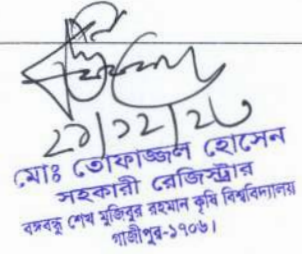 মোঃ তোফাজ্জল হোসেন
সহকারী রেজিস্ট্রার
বঙ্গবন্ধু শেখ মুজিবুর রহমান কৃষি বিশ্ববিদ্যালয়
গাজীপুর-১৭০৬।